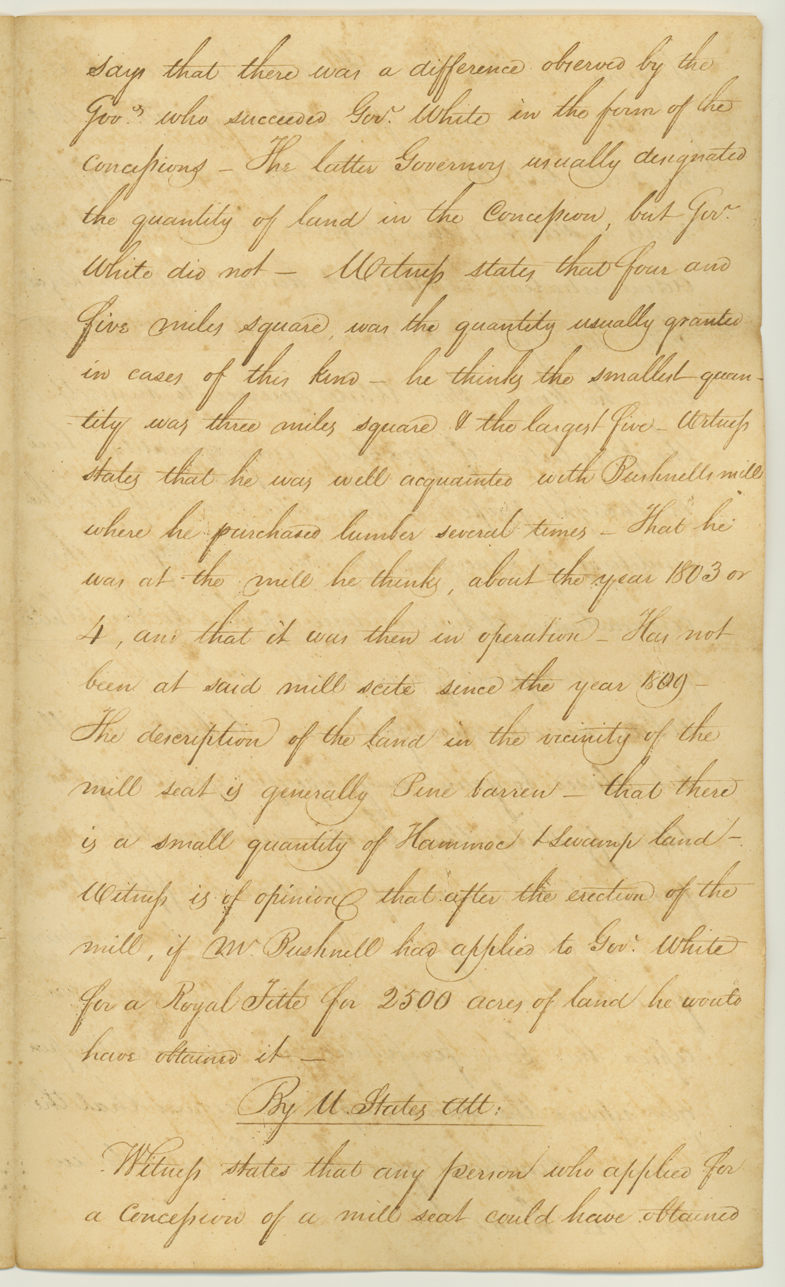 says that there was a difference observed by the
Gov.rs who succeeded Gov.r White in the form of the
Concessions – The latter Governors usually designated
the quantity of land in the Concession, but Gov.r
White did not – Witness states that four and
five miles square, was the quantity usually granted
in cases of this kind – he thinks the smallest quan-
tity was three miles square & the largest five – Witness
states that he was well acquainted with Bushnells mill
where he purchased lumber several times – That he
was at the mill he thinks, about the year 1803 or
4, and that it was then in operation – Has not
been at said mill scite since the year 1809 –
The description of the land in the vicinity of the
mill seat is generally Pine barren – that there
is a small quantity of Hammoc & Swamp land –
Witness is of opinion that after the erection of the
mill, if Mr. Bushnell had applied to Gov.r White
for a Royal Title for 2500 acres of land he would
have obtained it —
By U. States Att:
Witness states that any person who applied for
a Concession of a mill seat could have obtained